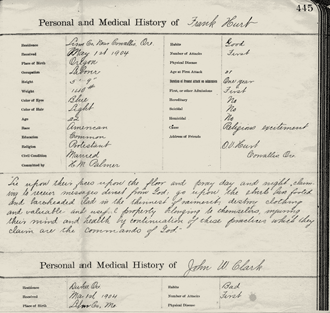 445
Personal and Medical History of Frank Hurt
Residence Linn Co. Near Corvallis Ore
Received May 1st 1904
Place of Birth Oregon
Occupation Laborer
Height 5' 9"
Weight
Color of Eyes Blue
Color of Hair Light
Age 22
Race American
Education Common
Religion Protestant
Civil Condition Married
Committed by H. M. Palmer
Habits Good
Number of Attacks First
Physical Disease
Age at First Attack 21
Duration of Present attack on admission One year
First, or other Admissions First
Hereditary No
Suicidal No
Homicidal No
Cause Religious excitement
Address of Friends
O.V. Hurt
Corvallis Ore.
lie upon their faces upon the floor and pray day and night, claim
to receive messages direct from God; go upon the streets bare footed
and bareheaded clad in the thinnest of raiment; destroy clothing
and valuable and useful property belonging to themselves, impairing
their mind and health by continuation of these practices which they
claim are the commands of God.
Personal and Medical History of John W. Clark
Residence Ore
Received 1904
Place of Birth Co, Mo
Habits Bad
Number of Attacks First
Physical Disease